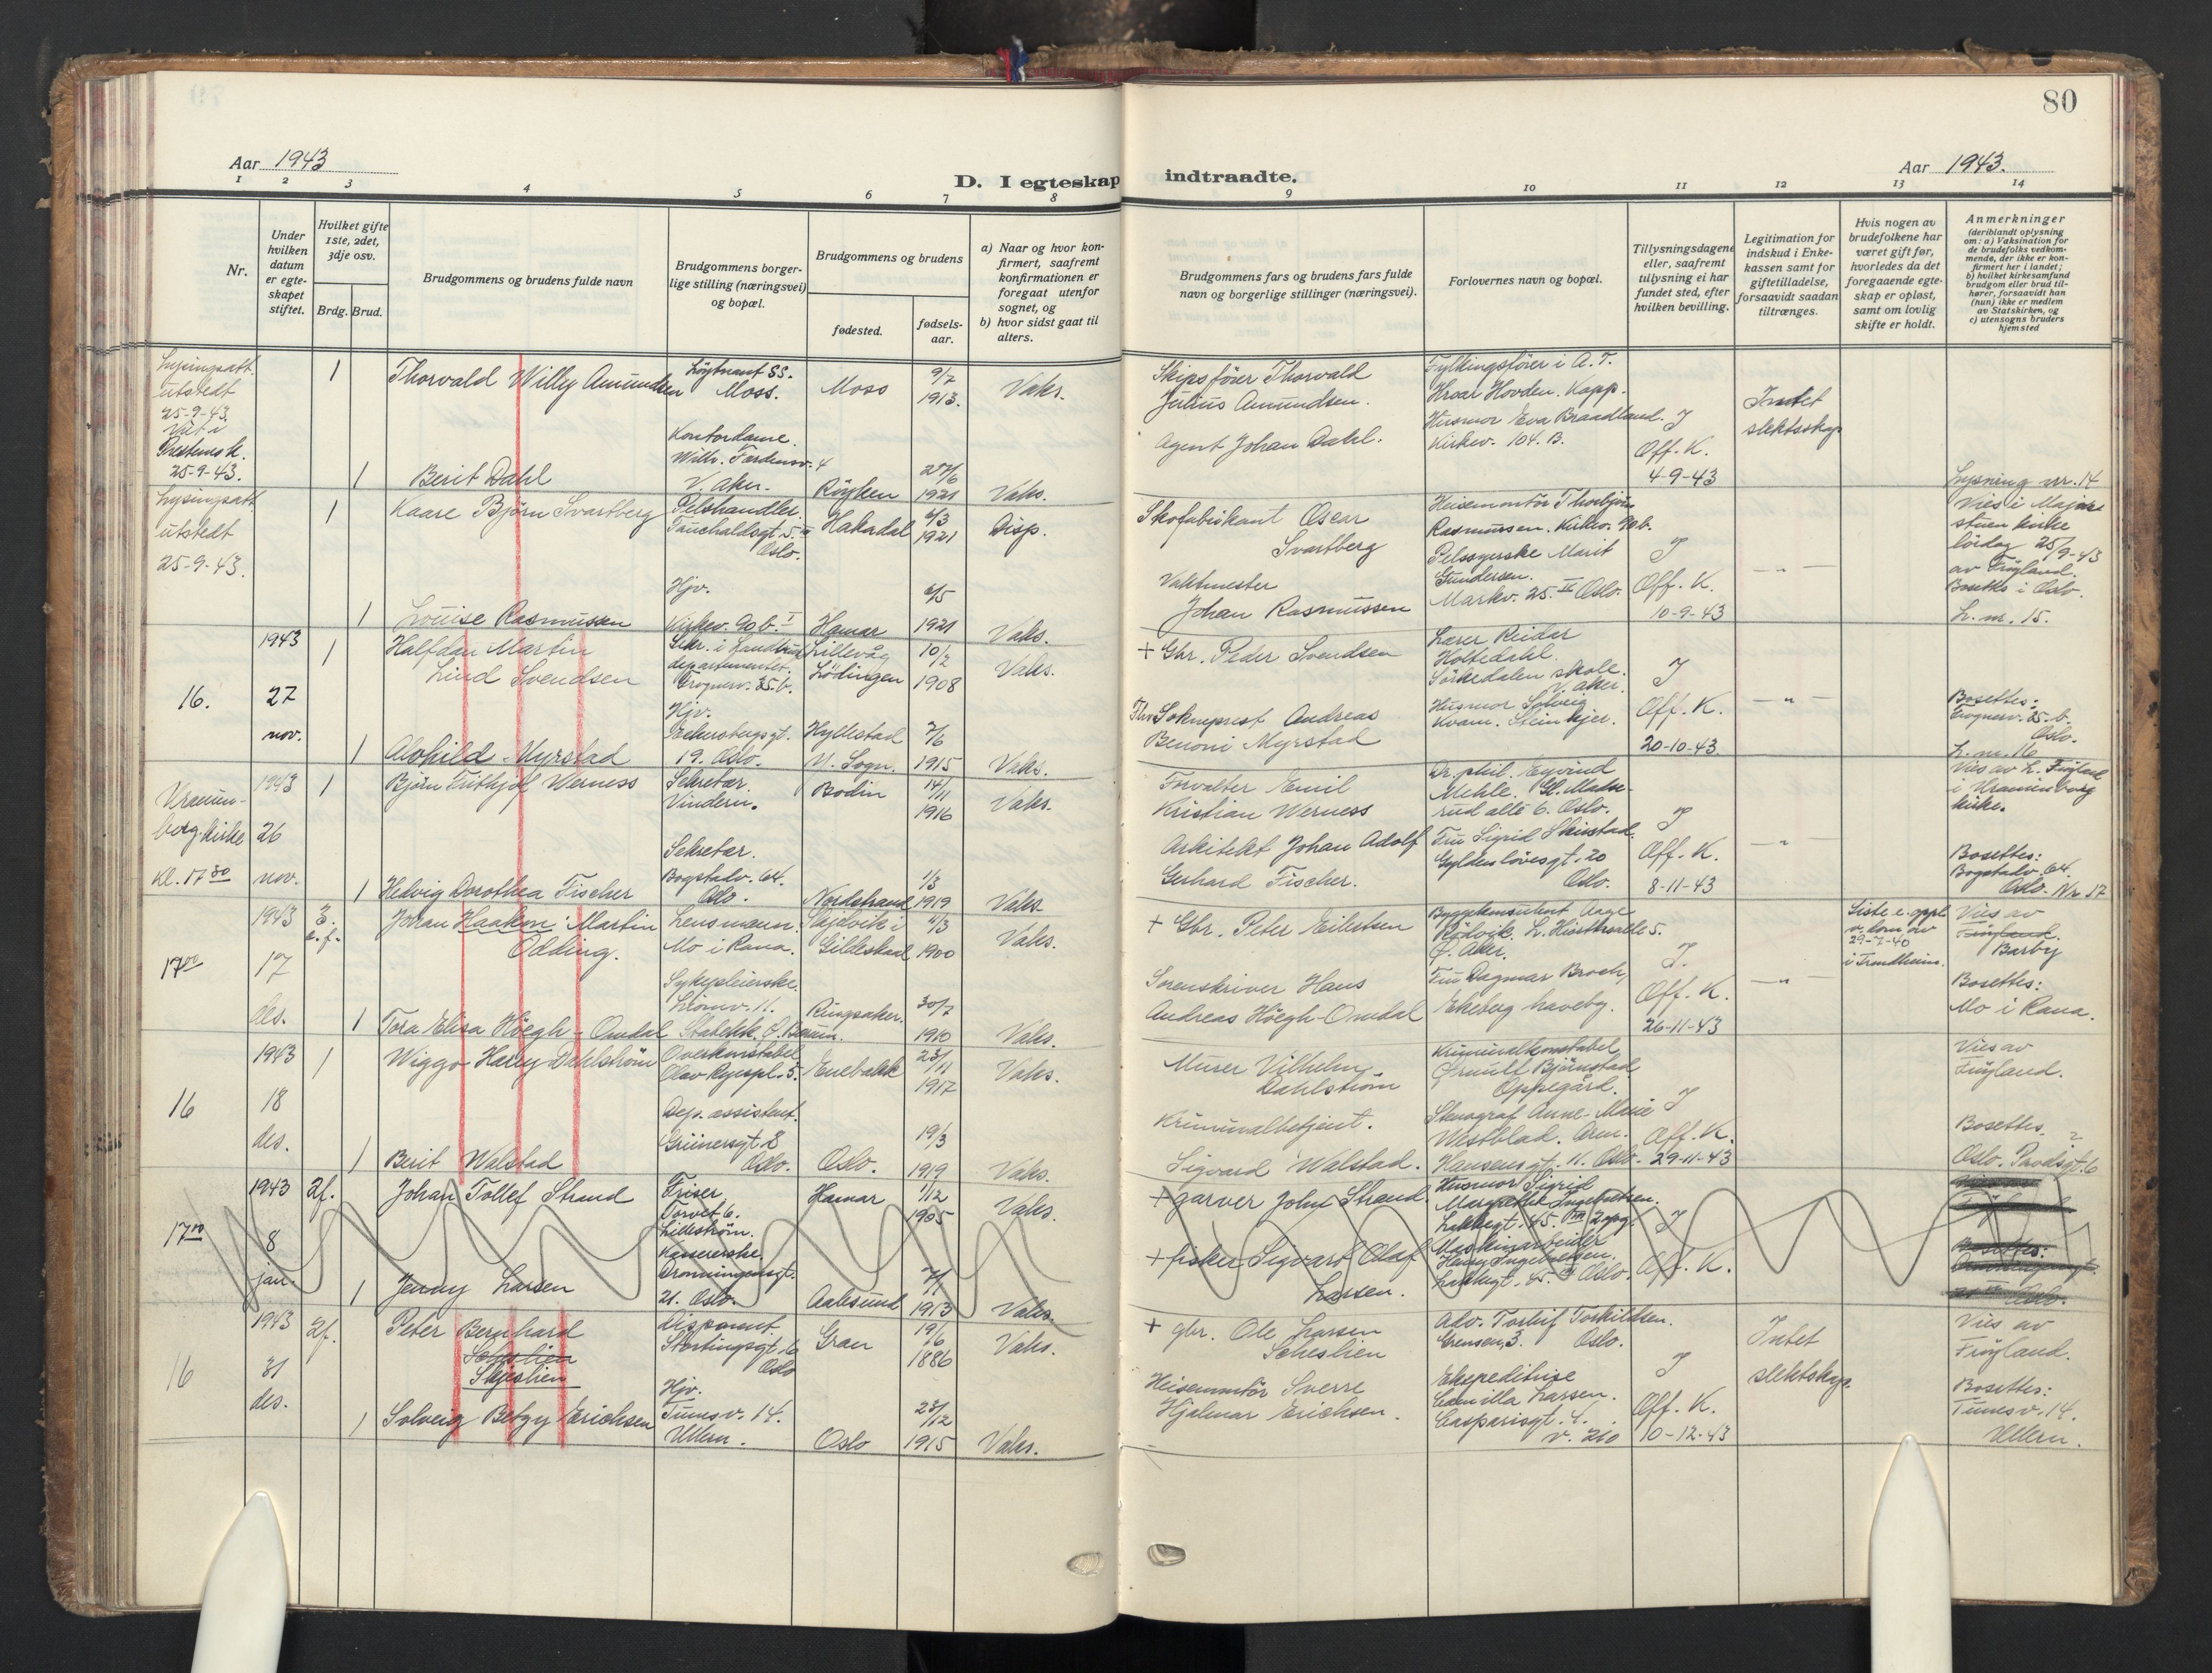 80
Aar 1943
D. I egteskap indtraadte.
Aar 1943.
1 2 3 4 5 6 7 8 9 10 11 12 13 14
Nr.
Under
hvilken
datum
er egte-
skapet
stiftet.
Hvilket gifte
1ste, 2det,
3dje osv.
Brdg. Brud.
Brudgommens og brudens fulde navn
Brudgommens borger-
lige stilling (næringsvei)
og bopæl.
Brudgommens og brudens
fødested.
fødsels-
aar.
a) Naar og hvor kon-
firmert, saafremt
konfirmationen er
foregaat utenfor
sognet, og
b) hvor sidst gaat til
alters.
Brudgommens fars og brudens fars fulde
navn og borgerlige stillinger (næringsvei).
Forlovernes navn og bopæl.
Tillysningsdagene
eller, saafremt
tillysning ei har
fundet sted, efter
hvilken bevilling.
Legitimation for
indskud i Enke-
kassen samt for
giftetilladelse,
forsaavidt saadan
tiltrænges.
Hvis nogen av
brudefolkene har
været gift før,
hvorledes da det
foregaaende egte-
skap er opløst,
samt om lovlig
skifte er holdt.
Anmerkninger
(deriblandt oplysning
om: a) Vaksination for
de brudefolks vedkom-
mende, der ikke er kon-
firmert her i landet;
b) hvilket kirkesamfund
brudgom eller brud til-
hører, forsaavidt han
(hun) ikke er medlem
av Statskirken, og
c) utensogns bruders
hjemsted
Lysingsatt.
utstedt
25-9-43.
Viet i
25-9-43.
1
Thorvald Willy Amundsen
Løytnant SS.
Moss.
Moss
9/7
1913.
Vaks.
Skipsfører Thorvald
Julius Amundsen.
Fylkingsfører i A.T.
Hroar Hovden. Kapp.
Intet
slektskap
1
Berit Dahl
Kontordame.
V. Aker.
Røyken
27/6
1921
Vaks.
Agent Johan Dahl.
Husmor Eva Braadland.
Kirkev. 104. B.
J
Off. K.
4-9-43
Lysning nr. 14
Lysingsatt.
utstedt
25-9-43.
1
Kaare Bjørn Svartberg
Pelshandler.
Fauchaldsgt. 5. III
Oslo.
Hakadal
6/3
1921
Disp.
Skofabrikant Oscar
Svartberg
Heisemontør Thorbjørn
Rasmussen. Kirkev. 90b.
Vies i Major-
stuen kirke
lördag 25/9-43
av Frøyland.
Bosettes i Oslo.
L. nr. 15.
1
Louise Rasmussen
Hjv.
Kirkev. 90 b. I
Hamar
4/5
1921
Vaks.
Vaktmester
Johan Rasmussen
Pelssyerske Marit
Gundersen.
Markv. 25. IV Oslo.
J
Off. K.
10-9-43
- " -
16.
1943
27
nov.
1
Halfdan Martin
Lind Svendsen
Sekr. i Landbruks
departementet.
Frognerv. 35. b.
Lillevåg
Lödingen
10/2
1908
Vaks.
+ Gbr. Peder Svendsen
Lærer Reidar
Holtedahl.
Sörkedalen skole.
V. Aker.
1
Alvhild Myrstad
Hjv.
19. Oslo.
Hyllestad
Y. Sogn.
7/6
1915
Vaks.
Sokneprest Andreas
Benoni Myrstad
Husmor Solveig
Kvam. Steinkjer.
J
Off. K.
20-10-43.
- " -
Bosettes:
Frognerv. 35. b.
Oslo.
L. nr. 16
Uranien-
borg kirke
Kl. 17 30
1943
26
nov.
1
Bjørn Frithjof Werness
Sekretær.
Vindern.
Bodin
14/11
1916
Vaks.
Forvalter Emil
Kristian Werness
Dr. phil. Eyvind
Mehle. Gl. Madse-
rud alle 6. Oslo.
Vies av L. Frøyland
i Uranienborg
kirke.
1
Hedvig Dorothea Fischer
Sekretær.
Bogstadv. 64.
Oslo.
Nordstrand
1/3
1919
Vaks.
Arkitekt Johan Adolf
Gerhard Fischer.
Fru Sigrid Skirstad.
Gyldenløvesgt. 20
Oslo.
J
Off. K.
8-11-43
- " -
Bosettes:
Bogstadv. 64.
Oslo. Nr. 17
17 00
1943
17
des.
2.
e. f.
Johan Haakon Martin
Odding.
Lensmann.
Mo i Rana.
Gildeskaal
4/3
1900
Vaks.
+ Gbr. Peter Eilertsen
Byggekonsulent Aage
Rödvik.
Ø. Aker.
Siste e. oppl.
v. dom av
29-7-40
i Trondheim.
Vies av
Frøyland.
Barby
1
Tora Elisa Höegh-Omdal
Sykepleierske.
Strömv. 11.
Stabekk. Ø. Bærum.
Ringsaker.
30/7
1910
Vaks.
Sorenskriver Hans
Andreas Höegh-Omdal
Fru Dagmar Broch,
Ekeberg haveby.
J.
Off. K.
26-11-43
- " -
Bosettes:
Mo i Rana.
16
1943
18
des.
1
Wiggo Harry Dahlström
Overkonstabel
Olav Ryespl. 5.
Enebakk
23/11
1917
Vaks.
Murer Vilhelm
Dahlström
Kriminalkonstabel
Ørnulf Björnstad
Oppegård.
Vies av
Frøyland.
1
Berit Walstad
Dep. assistent.
Grünersgt 8
Oslo.
Oslo.
19/3
1919
Vaks.
Kriminalbetjent.
Sigvard Walstad.
Stenograf Anne-Marie
Westblad. Arm.
Hansensgt. 11. Oslo.
J
Off. K.
29-11-43
Bosettes
17 00
1943
8
jan.
2f.
Johan Tollef Strand
Frisør
Torvet 6.
Lilleström.
Hamar
1/12
1905
Vaks.
+ garver Johs Strand
Husmor Sigrid
Margrethe Ingebretsen.
1
Jenny Larsen
Kassererske.
Dronningensgt.
21. Oslo.
Aalesund
7/1
1913
Vaks.
+ fisker Sigvart Olaf
Larsen.
Maskinarbeider
Harry Ingebretsen.
J
Off. K.
16
1943
31
des.
2f.
Peter Bernhard
Scheslien
Skjeslien
Disponent.
Stortingsgt. 16
Oslo
Gran
19/6
1886
Vaks.
+ gbr. Ole Larsen
Scheslien
Adv. Torleif Torkildsen.
Grensen, 3. Oslo.
Intet
slektskap.
Vies av
Frøyland.
1
Solveig Betzy Erichsen
Hjv.
Tunesv. 14.
Ullern.
Oslo
23/12
1915
Vaks.
Heisemontör Sverre
Hjalmar Erichsen.
Ekspeditrise
Camilla Larsen.
Casparisgt. 4.
J
Off. K.
10-12-43
Bosettes:
Tunesv. 14.
Ullern.